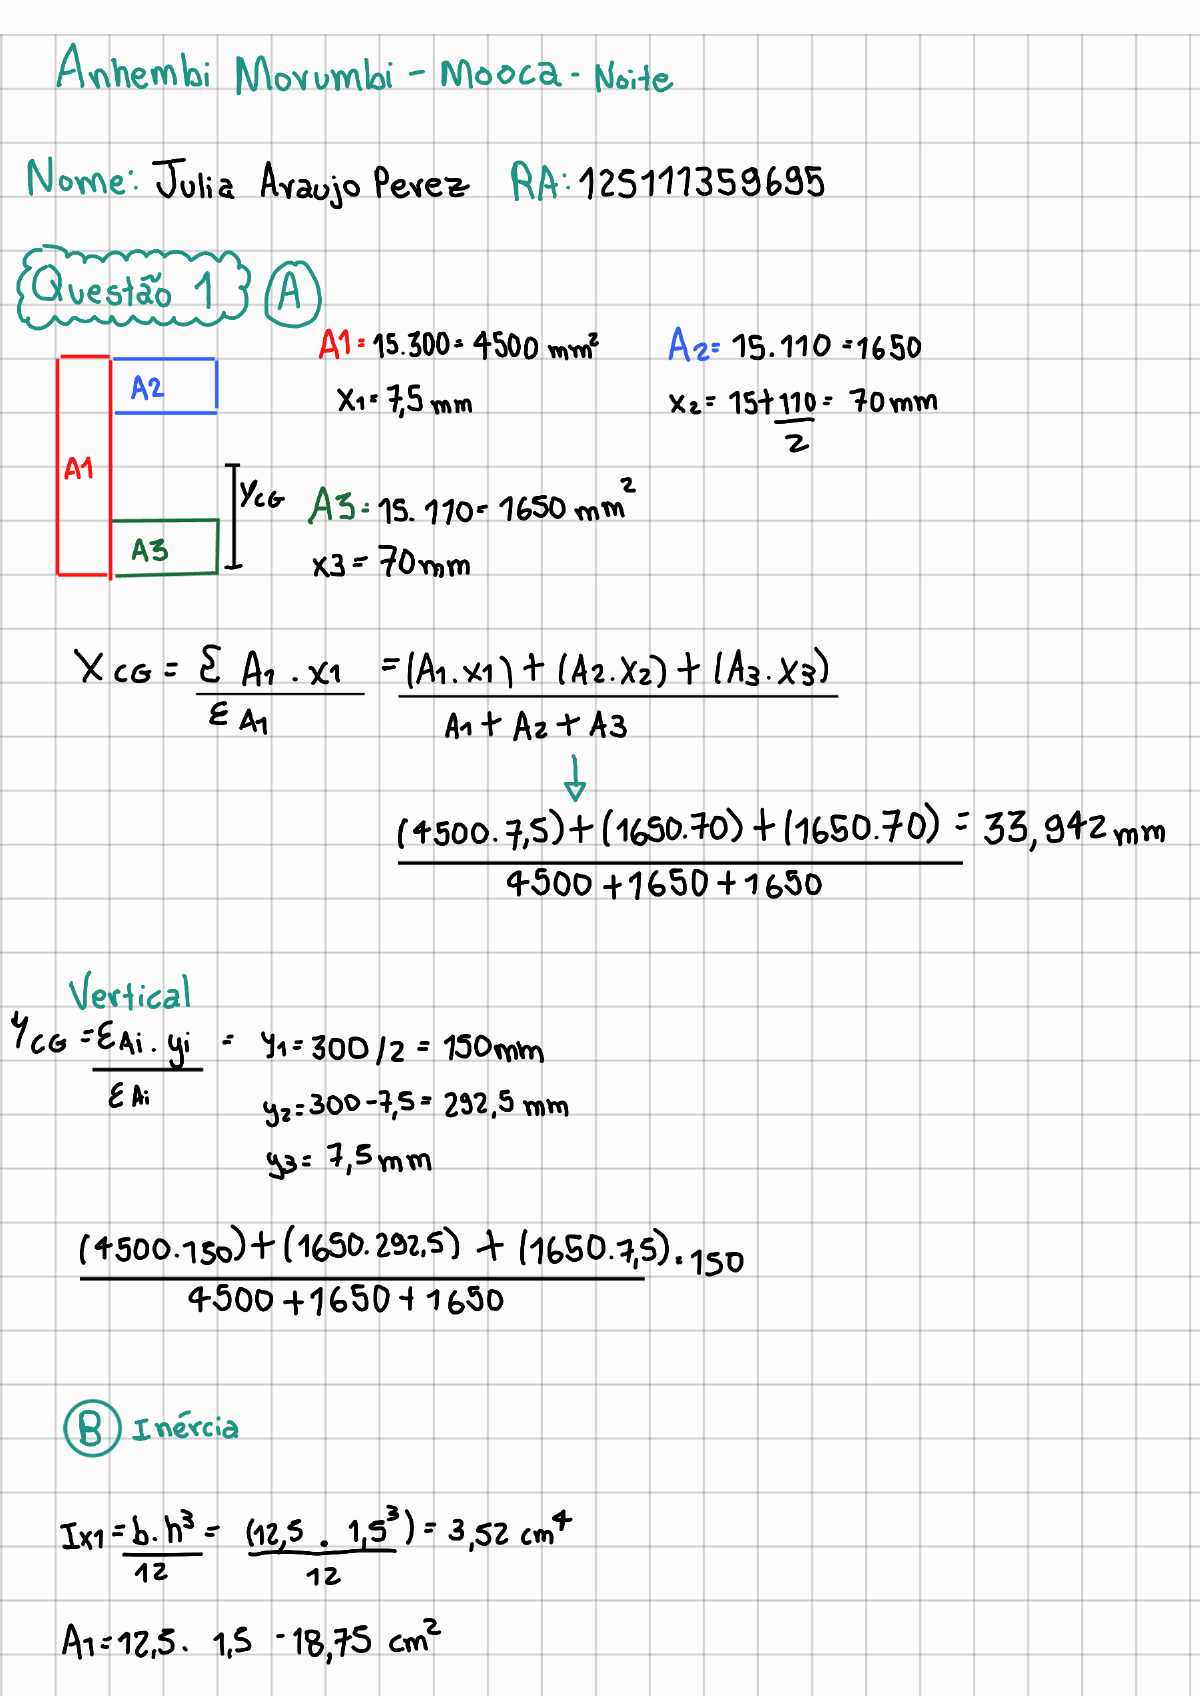 Anhembi Morumbi - Mooca - Noite
Nome: Julia Araujo Perez RA: 125111359695
Questão 1 A
A1 = 15.300 = 4500 mm² A2 = 15.110 = 1650
A2
x1 = 7,5 mm x2 = 15 + 110/2 = 70 mm
A1
YCG A3 = 15.110 = 1650 mm²
A3
x3 = 70 mm
XCG = Σ A1 . x1 / Σ A1 = (A1.x1) + (A2.x2) + (A3.x3) / A1 + A2 + A3
↓
(4500.7,5) + (1650.70) + (1650.70) / 4500 + 1650 + 1650 = 33,942 mm
Vertical
YCG = ΣAi . yi / ΣAi = y1 = 300/2 = 150mm
y2 = 300 - 7,5 = 292,5 mm
y3 = 7,5 mm
(4500.150) + (1650.292,5) + (1650.7,5) / 4500 + 1650 + 1650 = 150
B Inércia
Ix1 = b.h³ / 12 = (12,5 . 1,5³) / 12 = 3,52 cm⁴
A1 = 12,5 . 1,5 - 18,75 cm²